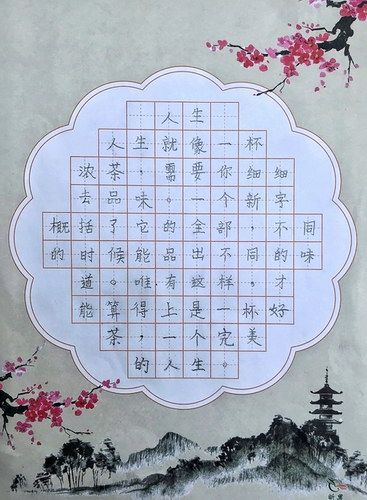 人生
人生就像一杯
浓茶，需要你细细
去品味。一个新字
概括了它的全部，不同
的时候能品出不同的味
道。唯有这样，才
能算得上是一杯好
茶，一个完美
的人生。